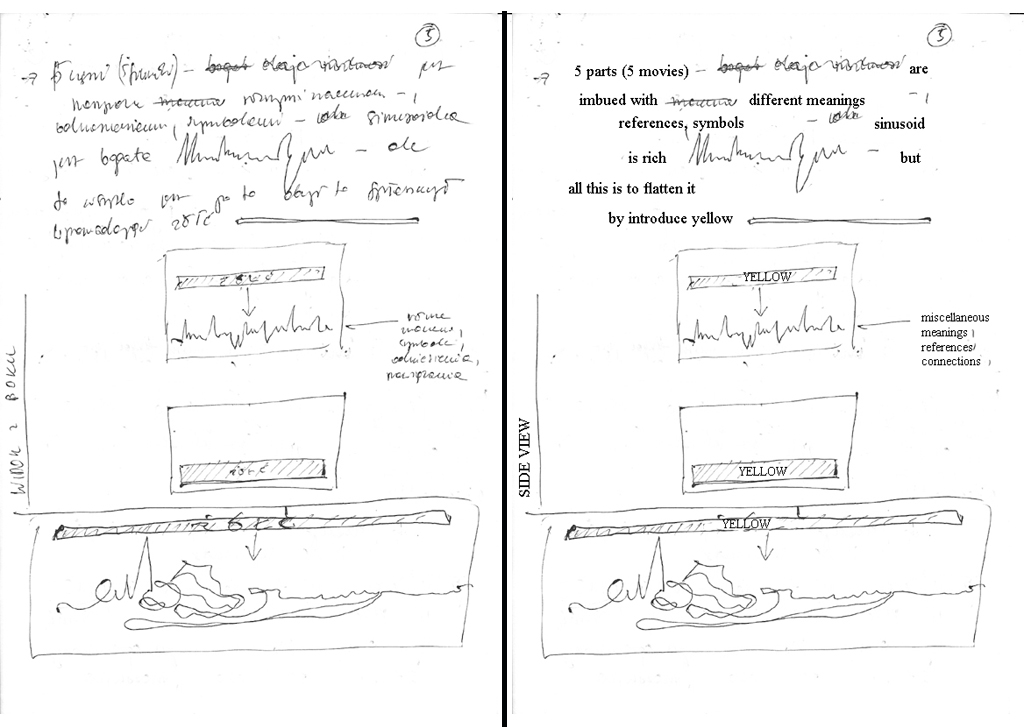 5
→ 5 części (5 filmów) – jest
różnymi znaczeniami – ,
odniesieniami, symbolami – sinusoida
jest bogata – ale
to wszystko jest po to żeby to spłaszczyć
wprowadzając żółć
żółć
różne
znaczenia,
symbole,
odniesienia,
nawiązania
WIDOK Z BOKU
żółć
żółć
5
→ 5 parts (5 movies) – are
imbued with different meanings – ,
references, symbols – sinusoid
is rich – but
all this is to flatten it
by introduce yellow
YELLOW
miscellaneous
meanings ,
references/
connections ,
SIDE VIEW
YELLOW
YELLOW